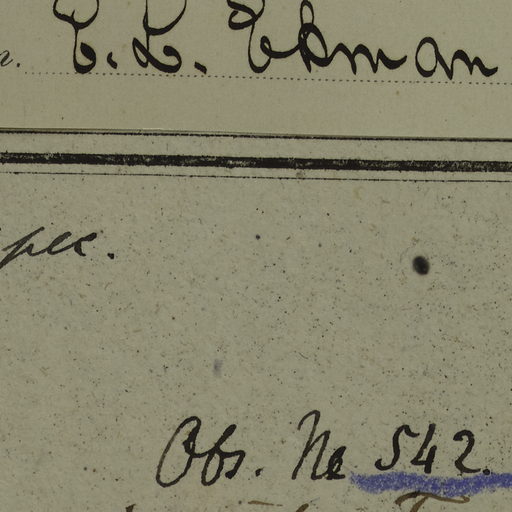 E. L. Ekman
spec.
Obs. No 542.